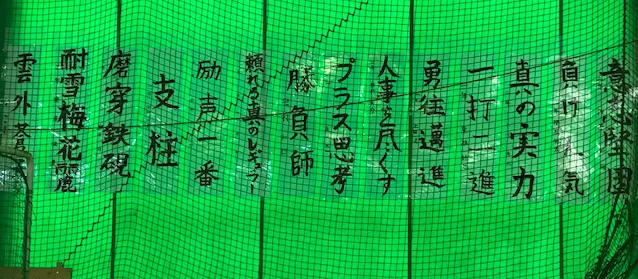 意志堅固
負けん気
真の実力
一打二進
勇往邁進
人事を尽くす
プラス思考
勝負師
頼れる真のレギュラー
励声一番
支柱
磨穿鉄硯
耐雪梅花麗
雲外蒼天